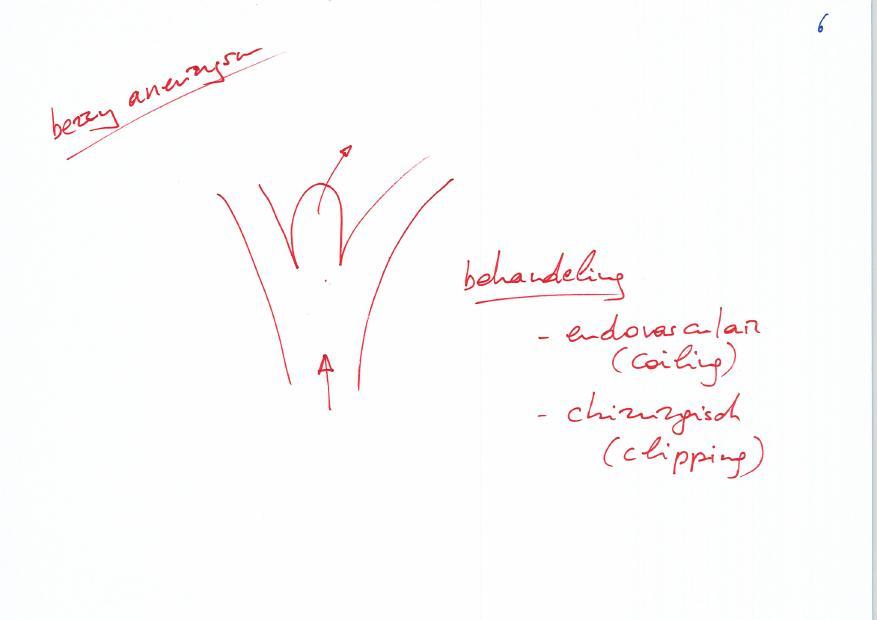 6
berry aneurysm
behandeling
- endovasculair
(coiling)
- chirurgisch
(clipping)